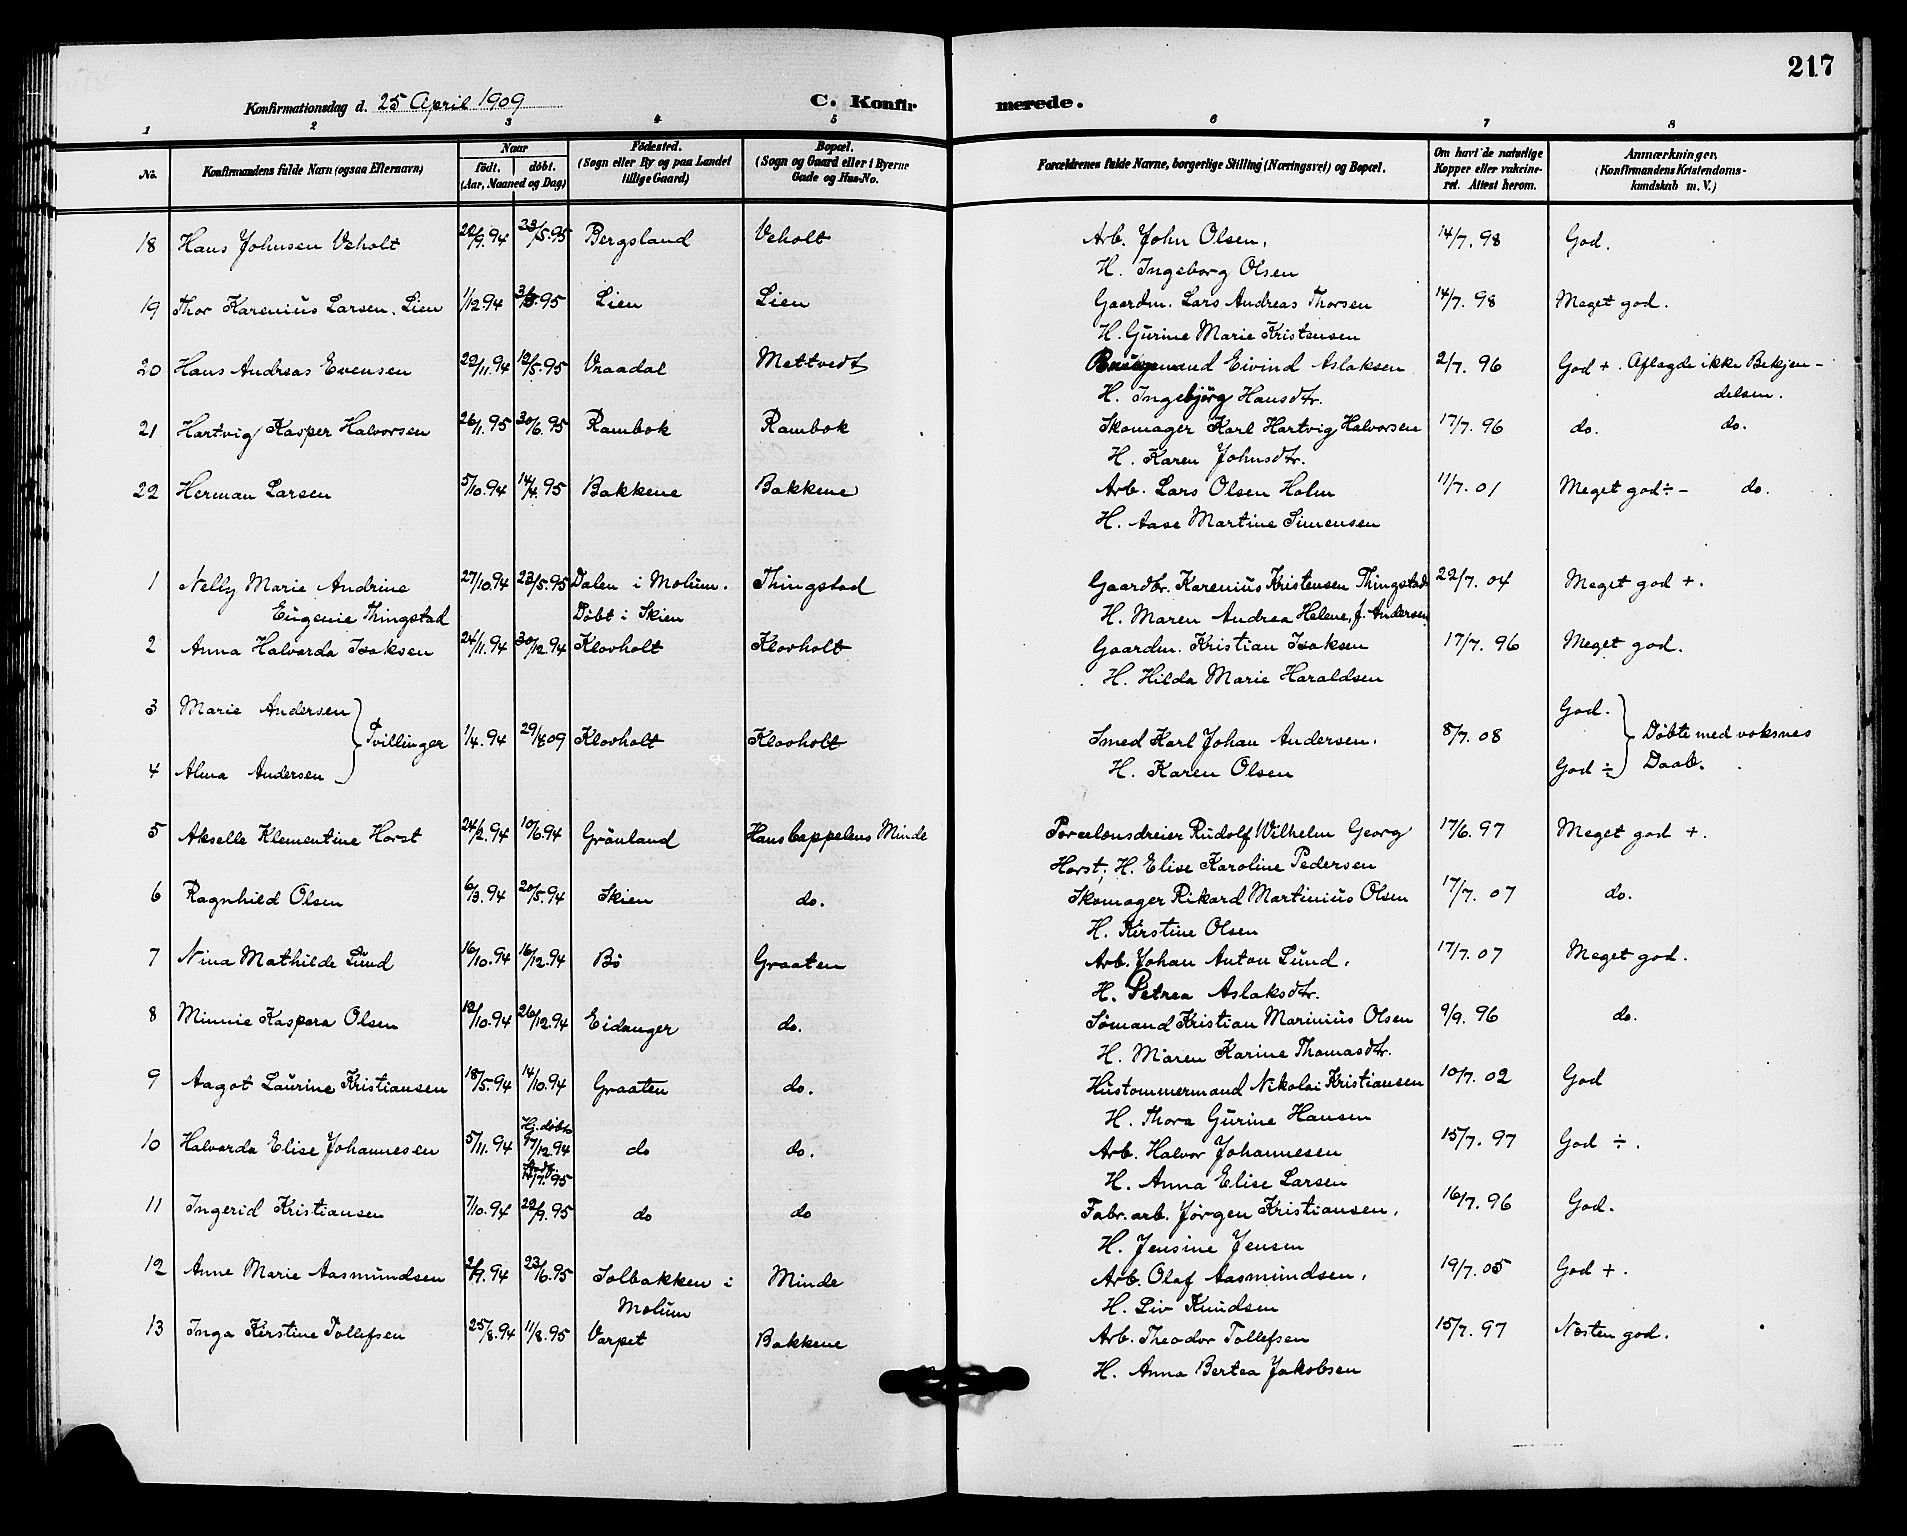 217
Konfirmationsdag d. 25 April 1909 C. Konfir merede.
1 2 3 4 5 6 7 8
No. Konfirmandens fulde Navn (ogsaa Efternavn) Naar født. døbt. (Aar, Maaned og Dag) Fødested. (Sogn eller By og paa Landet tillige Gaard) Bopæl. (Sogn og Gaard eller i Byerne Gade og Hus-No. Forældrenes fulde Navne, borgerlige Stilling (Næringsvei) og Bopæl. Om havt de naturlige Kopper eller vakcineret. Attest herom. Anmærkninger. (Konfirmandens Kristendomskundskab m. V.)
18 Hans Johnsen Veholt 22/9.94 23/5.95 Bergsland Veholt Arb. John Olsen, 14/7. 98 God.
H. Ingeborg Olsen
19 Thor Karenius Larsen, Lien 1/12 94 3/3.95 Lien Lien Gaardm. Lars Andreas Thorsen 14/7. 98 Meget god.
H. Gurine Marie Kristensen
20 Hans Andreas Evensen 22/11.94 12/5.95 Vraadal Mettvedt Eivind Aslaksen 2/7. 96 God +. Aflagde ikke Bekjen-
H. Ingebjørg Hansdtr. delsen.
21 Hartvig Kasper Halvorsen 26/1.95 30/6.95 Rambok Rambok Skomager Karl Hartvig Halvorsen 17/7. 96 do. do.
H. Karen Johnsdtr.
22 Herman Larsen 5/10.94 14/4.95 Bakkene Bakkene Arb. Lars Olsen Holm 11/7. 01 Meget god ÷ - do.
H. Aase Martine Simensen
1 Nelly Marie Andrine 27/10.94 23/5.95 Dalen i Molum. Thingstad Gaardbr. Karenius Kristensen Thingstad 22/7. 04 Meget god +.
Eugenie Thingstad Døbt i Skien H. Maren Andrea Helene, f. Andersen
2 Anna Halvarda Isaksen 24/11.94 30/12.94 Klovholt Klovholt Gaardm. Kristian Isaksen 17/7. 96 Meget god.
H. Hilda Marie Haraldsen
3 Marie Andersen God.
Tvillinger 1/4.94 29/4.09 Klovholt Klovholt Smed Karl Johan Andersen. 8/7. 08 Døbte med voksnes
4 Alma Andersen H. Karen Olsen God ÷ Daab.
5 Akselle Klementine Horst 24/2.94 10/6.94 Grønland Hans Cappelens Minde Porcelænsdreier Rudolf Wilhelm Georg 17/6. 97 Meget god +.
Horst; H. Elise Karoline Pedersen
6 Ragnhild Olsen 6/3.94 20/5.94 Skien do. Skomager Rikard Martinius Olsen 17/7. 07 do.
H. Kirstine Olsen
7 Nina Mathilde Lund 16/10.94 16/12.94 Bø Graaten Arb. Johan Anton Lund. 17/7. 07 Meget god.
H. Petrea Aslaksdtr.
8 Minnie Kaspara Olsen 12/10.94 26/12.94 Eidanger do. Sømand Kristian Marinius Olsen 9/9. 96 do.
H. Maren Karine Thomasdtr.
9 Aagot Laurine Kristiansen 18/5.94 14/10.94 Graaten do. Hustømmermand Nikolai Kristiansen 10/7. 02 God
H. Thora Gurine Hansen
Hj.døbt
10 Halvarda Elise Johannesen 5/11.94 17/12.94 do do. Arb. Halvor Johannesen 15/7. 97 God ÷.
H. Anna Elise Larsen
11 Ingerid Kristiansen 7/10.94 22/9.95 do do Fabr.arb. Jørgen Kristiansen, 16/7. 96 God.
H. Jensine Jensen
12 Anne Marie Aasmundsen 2/9.94 23/6.95 Solbakken i Minde Arb. Olaf Aasmundsen, 19/7. 05 God +.
Molum H. Liv Knudsen
13 Inga Kirstine Tollefsen 25/8.94 11/8.95 Varpet Bakkene Arb. Theodor Tollefsen 15/7. 97 Næsten god.
H. Anna Bertea Jakobsen